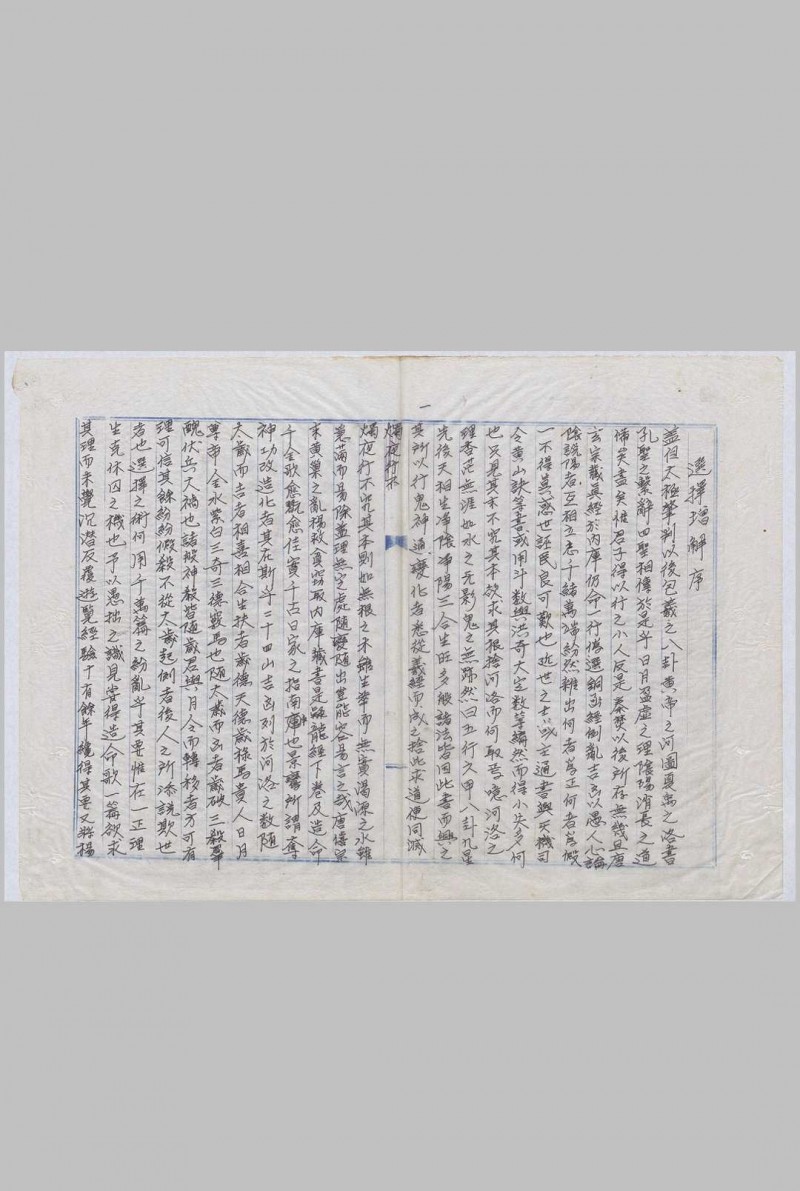 選擇增解序
蓋但太極肇判以後包羲之八卦黃帝之河圖夏禹之洛書
孔聖之繫辭四聖相傳於是乎日月盈虛之理陰陽消長之道
備矣盡矣惟君子得以行之小人反是秦焚以後所存無幾且唐
玄宗藏眞經於內庫仍命一行僞選銅函經倒亂吉凶以愚人心論
陰說陽者互相立志千緖萬端紛然雜出何者爲正何者爲假
一不得眞惑世誣民良可歎也近世之士或主通書與天機司
令黃山訣等書或用斗數與洪奇大定數等 然而得小失多何
也只見其末不究其本欲求其根捨河洛而何取焉噫河洛之
理杳茫無涯如水之无影鬼之無跡然曰五行六甲八卦九星
先後天相生淨陰淨陽三合生旺多般諸法皆因此書而興之
其所以行鬼神通變化者悉從羲經而成之捨此求道便同滅
燭夜行不
燭夜行不究其本則如無根之木雖生華而無實渴源之水雖
滿而易除蓋理無定處隨變隨出豈能容易言之哉唐僖宗
末黃巢之亂楊救貧竊取內庫藏書是 龍經下卷及造命
千金歌愈 愈佳實千古日家之指南車也景鸞所謂奪
神功改造化者其在斯乎二十四山吉凶列於河洛之數隨
太歲而吉者相喜相合生扶者歲德天德歲祿馬貴人日月
尊帝金水紫白三奇三德 馬也隨太歲而凶者歲破三殺
醜伏兵大禍也諸般神殺皆隨歲君與月令而轉移者方可有
理可信其餘紛紛假殺不從太歲起例者後人之所添說欺世
者也選擇之術何用千萬篇之紛亂乎其要惟在一正理
生克休囚之機也予以愚拙之識見 得造命歌一篇欲求
其理而未覺沉潜反覆遊覽經驗十有餘年纔得其要又將楊